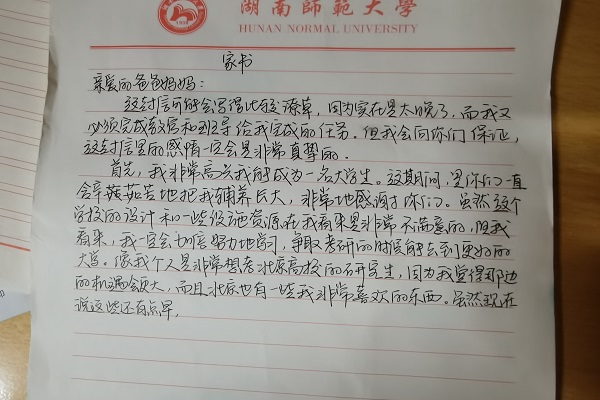 湖南師範大学
HUNAN NORMAL UNIVERSITY
家书
亲爱的爸爸妈妈：
这封信可能会写得比较潦草，因为实在是太晚了，而我又
必须完成教官和班导给我完成的任务。但我会向你们保证，
这封信里的感情一定会是非常真挚的．
首先，我非常高兴我能成为一名大学生。这期间，是你们一直
含辛茹苦地把我辅养长大，非常地感谢你们。虽然这个
学校的设计和一些设施资源在我看来是非常不满意的，但我
看来，我一定会加倍努力地学习，争取考研的时候能去到更好的
大学。像我个人是非常想考北京高校的研究生，因为我觉得那边
的机遇会更大，而且北京也有一些我非常喜欢的东西。虽然现在
说这些还有点早，